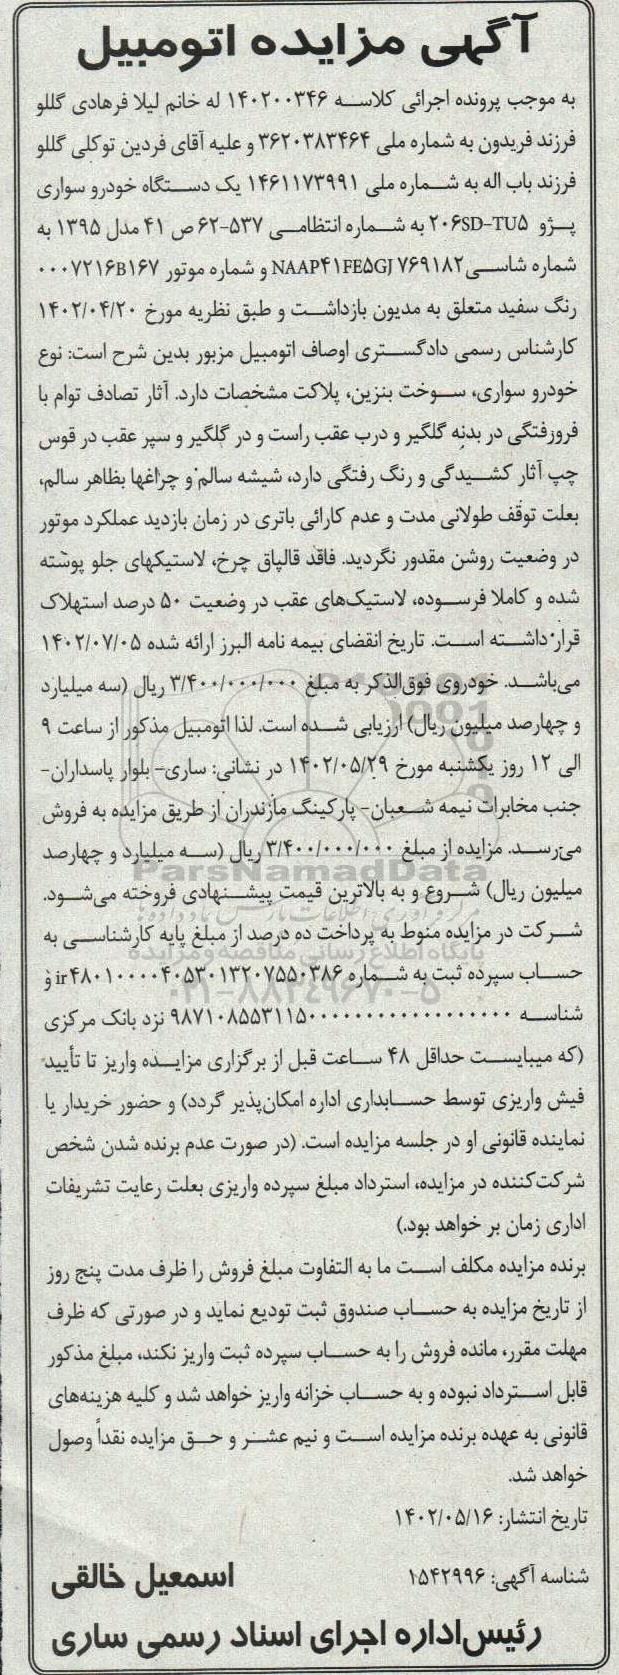 آگهی مزایده اتومبیل
به موجب پرونده اجرائی کلاسه ۱۴۰۲۰۰۳۴۶ له خانم لیلا فرهادی گللو
فرزند فریدون به شماره ملی ۳۶۲۰۳۸۳۴۶۴ و علیه آقای فردین توکلی گللو
فرزند باب اله به شماره ملی ۱۴۶۱۱۷۳۹۹۱ یک دستگاه خودرو سواری
پژو ۲۰۶SD-TU۵ به شماره انتظامی ۵۳۷-۶۲ ص ۴۱ مدل ۱۳۹۵ به
شماره شاسی NAAP۴۱FE۵GJ۷۶۹۱۸۲ و شماره موتور ۱۶۷B۰۰۰۷۲۱۶
رنگ سفید متعلق به مدیون بازداشت و طبق نظریه مورخ ۱۴۰۲/۰۴/۲۰
کارشناس رسمی دادگستری اوصاف اتومبیل مزبور بدین شرح است: نوع
خودرو سواری، سوخت بنزین، پلاکت مشخصات دارد. آثار تصادف توام با
فرورفتگی در بدنه گلگیر و درب عقب راست و در گلگیر و سپر عقب در قوس
چپ آثار کشیدگی و رنگ رفتگی دارد، شیشه سالم و چراغها بظاهر سالم،
بعلت توقف طولانی مدت و عدم کارائی باتری در زمان بازدید عملکرد موتور
در وضعیت روشن مقدور نگردید. فاقد قالپاق چرخ، لاستیکهای جلو پوشته
شده و کاملا فرسوده، لاستیک‌های عقب در وضعیت ۵۰ درصد استهلاک
قرار داشته است. تاریخ انقضای بیمه نامه البرز ارائه شده ۱۴۰۲/۰۷/۰۵
می‌باشد. خودروی فوق‌الذکر به مبلغ ۳/۴۰۰/۰۰۰/۰۰۰ ریال (سه میلیارد
و چهارصد میلیون ریال) ارزیابی شده است. لذا اتومبیل مذکور از ساعت ۹
الی ۱۲ روز یکشنبه مورخ ۱۴۰۲/۰۵/۲۹ در نشانی: ساری- بلوار پاسداران-
جنب مخابرات نیمه شعبان- پارکینگ مازندران از طریق مزایده به فروش
می‌رسد. مزایده از مبلغ ۳/۴۰۰/۰۰۰/۰۰۰ ریال (سه میلیارد و چهارصد
ParsNamadData
میلیون ریال) شروع و به بالاترین قیمت پیشنهادی فروخته می‌شود.
شرکت در مزایده منوط به پرداخت ده درصد از مبلغ پایه کارشناسی به
پایگاه اطلاع رسانی مناقصه و مزایده
حساب سپرده ثبت به شماره ir۴۸۰۱۰۰۰۰۴۰۵۳۰۱۳۲۰۷۵۵۰۳۸۶ و
۰۲۱-۸۸۳۴۹۶۷۰-۵
شناسه ۹۸۷۱۰۸۵۵۳۱۱۵۰۰۰۰۰۰۰۰۰۰۰۰۰۰۰۰۰۰ نزد بانک مرکزی
(که میبایست حداقل ۴۸ ساعت قبل از برگزاری مزایده واریز تا تأیید
فیش واریزی توسط حسابداری اداره امکان‌پذیر گردد) و حضور خریدار یا
نماینده قانونی او در جلسه مزایده است. (در صورت عدم برنده شدن شخص
شرکت‌کننده در مزایده، استرداد مبلغ سپرده واریزی بعلت رعایت تشریفات
اداری زمان بر خواهد بود.)
برنده مزایده مکلف است ما به التفاوت مبلغ فروش را ظرف مدت پنج روز
از تاریخ مزایده به حساب صندوق ثبت تودیع نماید و در صورتی که ظرف
مهلت مقرر، مانده فروش را به حساب سپرده ثبت واریز نکند، مبلغ مذکور
قابل استرداد نبوده و به حساب خزانه واریز خواهد شد و کلیه هزینه‌های
قانونی به عهده برنده مزایده است و نیم عشر و حق مزایده نقداً وصول
خواهد شد.
تاریخ انتشار: ۱۴۰۲/۰۵/۱۶
شناسه آگهی: ۱۵۴۲۹۹۶
اسمعیل خالقی
رئیس‌اداره اجرای اسناد رسمی ساری